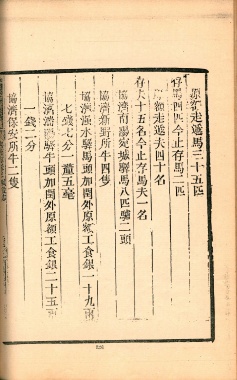 原額走遞馬三十五匹
存馬四匹今止存馬二匹
原額走遞夫四十名
存夫十五名今止存馬夫一名
協濟南陽宛城驛馬八匹驢二頭
協濟新野所牛四隻
協濟 水驛馬頭加閏外原額工食銀一十九兩
七錢七分一釐五毫
協濟 驛牛頭加閏外原額工食銀二十五兩
一錢二分
協濟保安所牛二隻